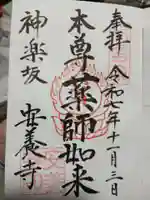 奉拝
令和七年十一月三日
本尊薬師如来
神楽坂
安養寺